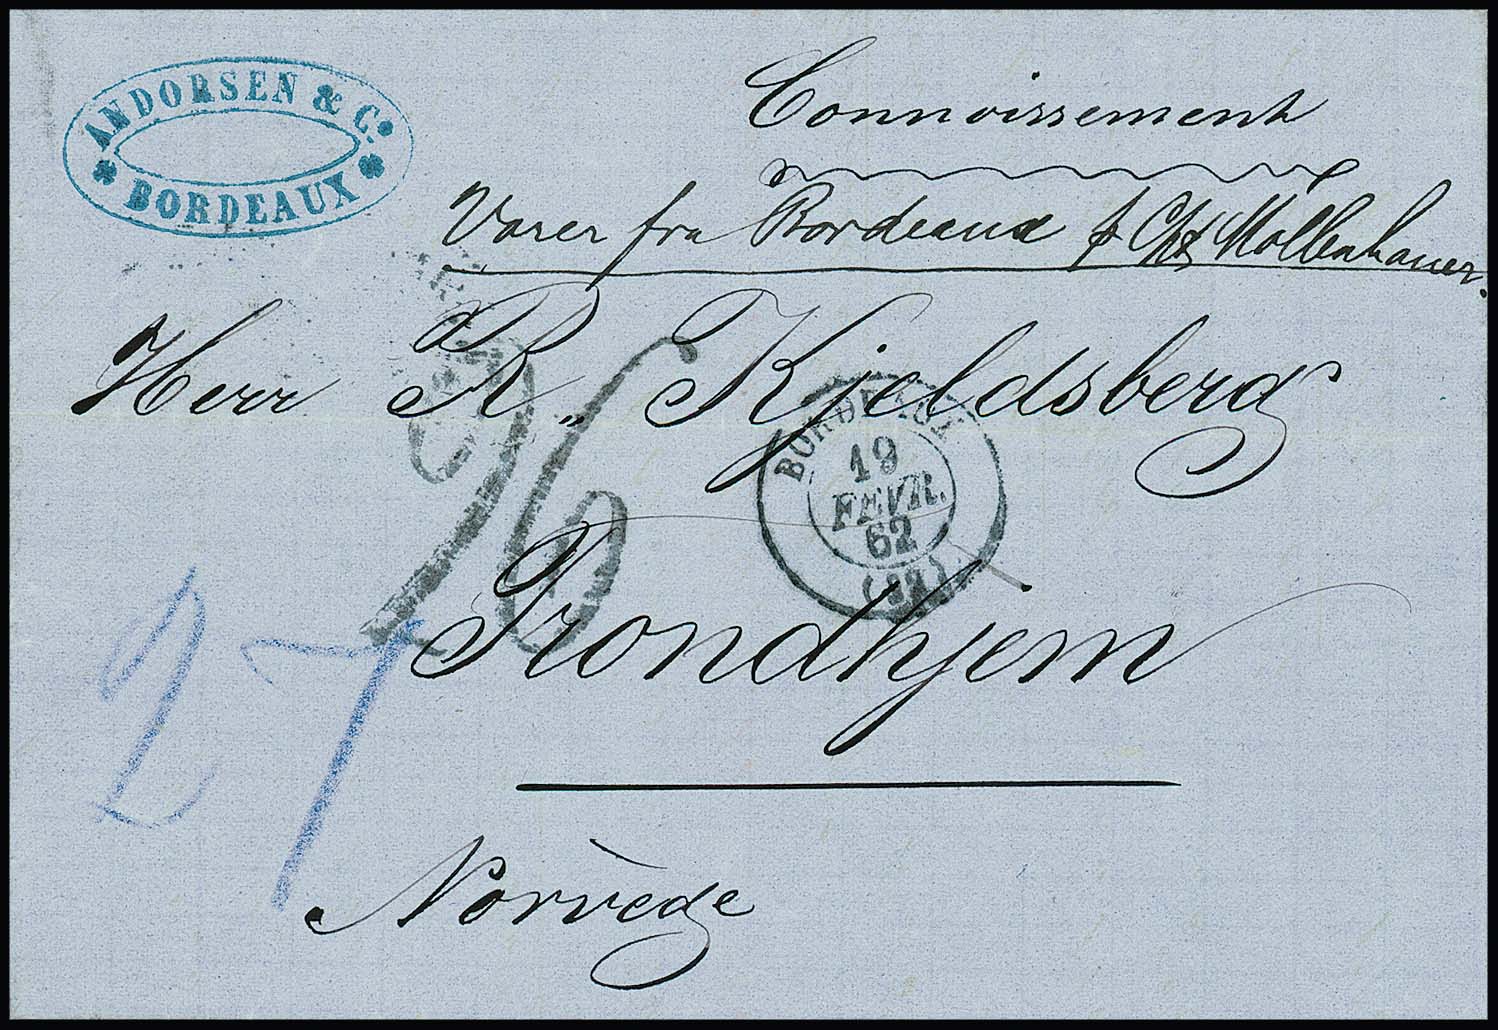 ANDORSEN & Co.
BORDEAUX
Connoissement
Varer fra Bordeaux p Cpt Mollenhauer.
Herr R. Kjeldsberg
26
BORDEAUX
19
FEVR.
62
(32)
Trondhjem
27
Norvège